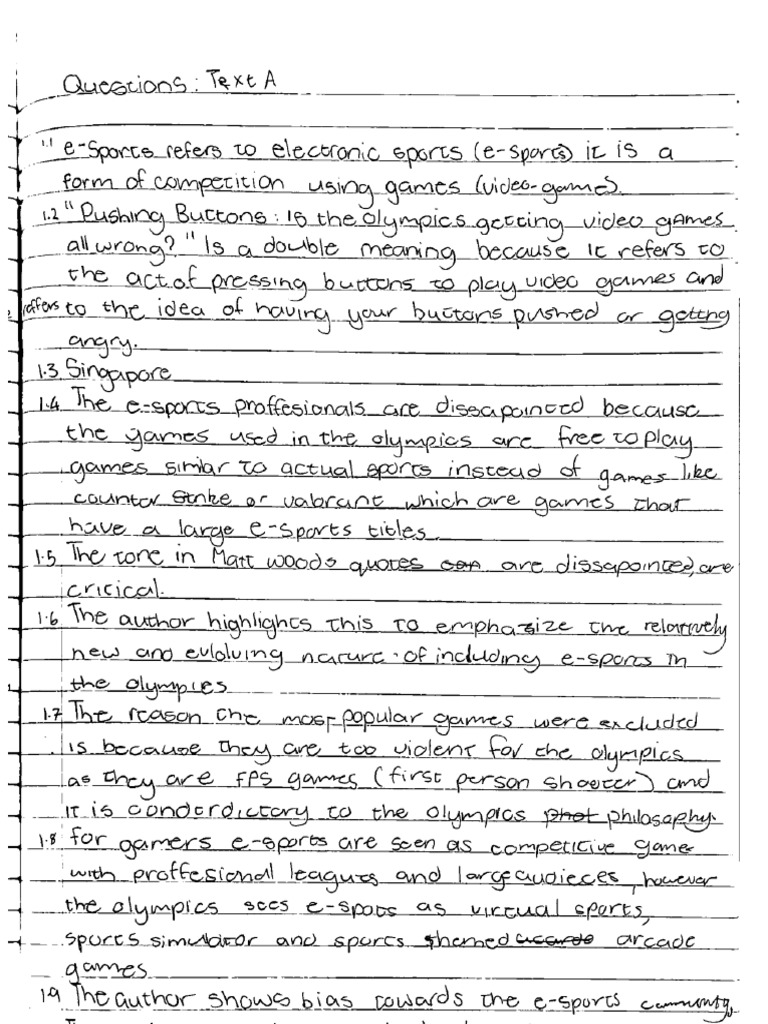 Questions: Text A
1.1 e-Sports refers to electronic sports (e-sports) it is a
form of competition using games (video-game).
1.2 "Pushing Buttons: Is the Olympics getting video games
all wrong?" Is a double meaning because it refers to
the act of pressing buttons to play video games and
reffers to the idea of having your buttons pushed or getting
angry.
1.3 Singapore
1.4 The e-sports proffesionals are dissapointed because
the games used in the olympics are free to play
games similar to actual sports instead of games like
counter strike or valbrant which are games that
have a large e-sports titles.
1.5 The tone in Matt woods quotes are dissapointed, are
cricical.
1.6 The author highlights this to emphasize the relatively
new and evlolving nature of including e-sports in
the olympics
1.7 The reason the most popular games were excluded
is because they are too violent for the olympics
as they are FPS games (first person shooter) and
it is conderdictory to the olympics phot philosophy.
1.8 for gamers e-sports are seen as competitive game
with proffesional leagues and large audieces, however
the olympics sees e-spots as virtual sports,
sports simulator and sports themed arcade
games
1.9 The author shows bias towards the e-sports community,